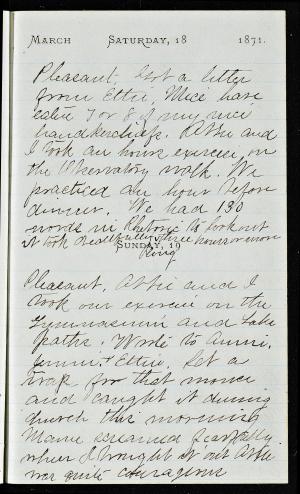 MARCH SATURDAY, 18 1871.
Pleasant. Got a letter
from Ettie. Mice have
eaten 7 or 8 of my nice
handkerchiefs. Abbie and
I took an hours exercise on
the Observatory walk. We
practiced an hour before
dinner. We had 130
words in Rhetoric to look out
it took dreadfully three hours or more
SUNDAY, 19
Pleasant. Abbie and I
took our exercise on the
Gymnasium and Lake
paths. Wrote to Annie,
Ettie. Set a
trap for that mouse
and caught it during
church this morning
Mame screamed fearfully
when I brought it out Abbie
was quite courageous